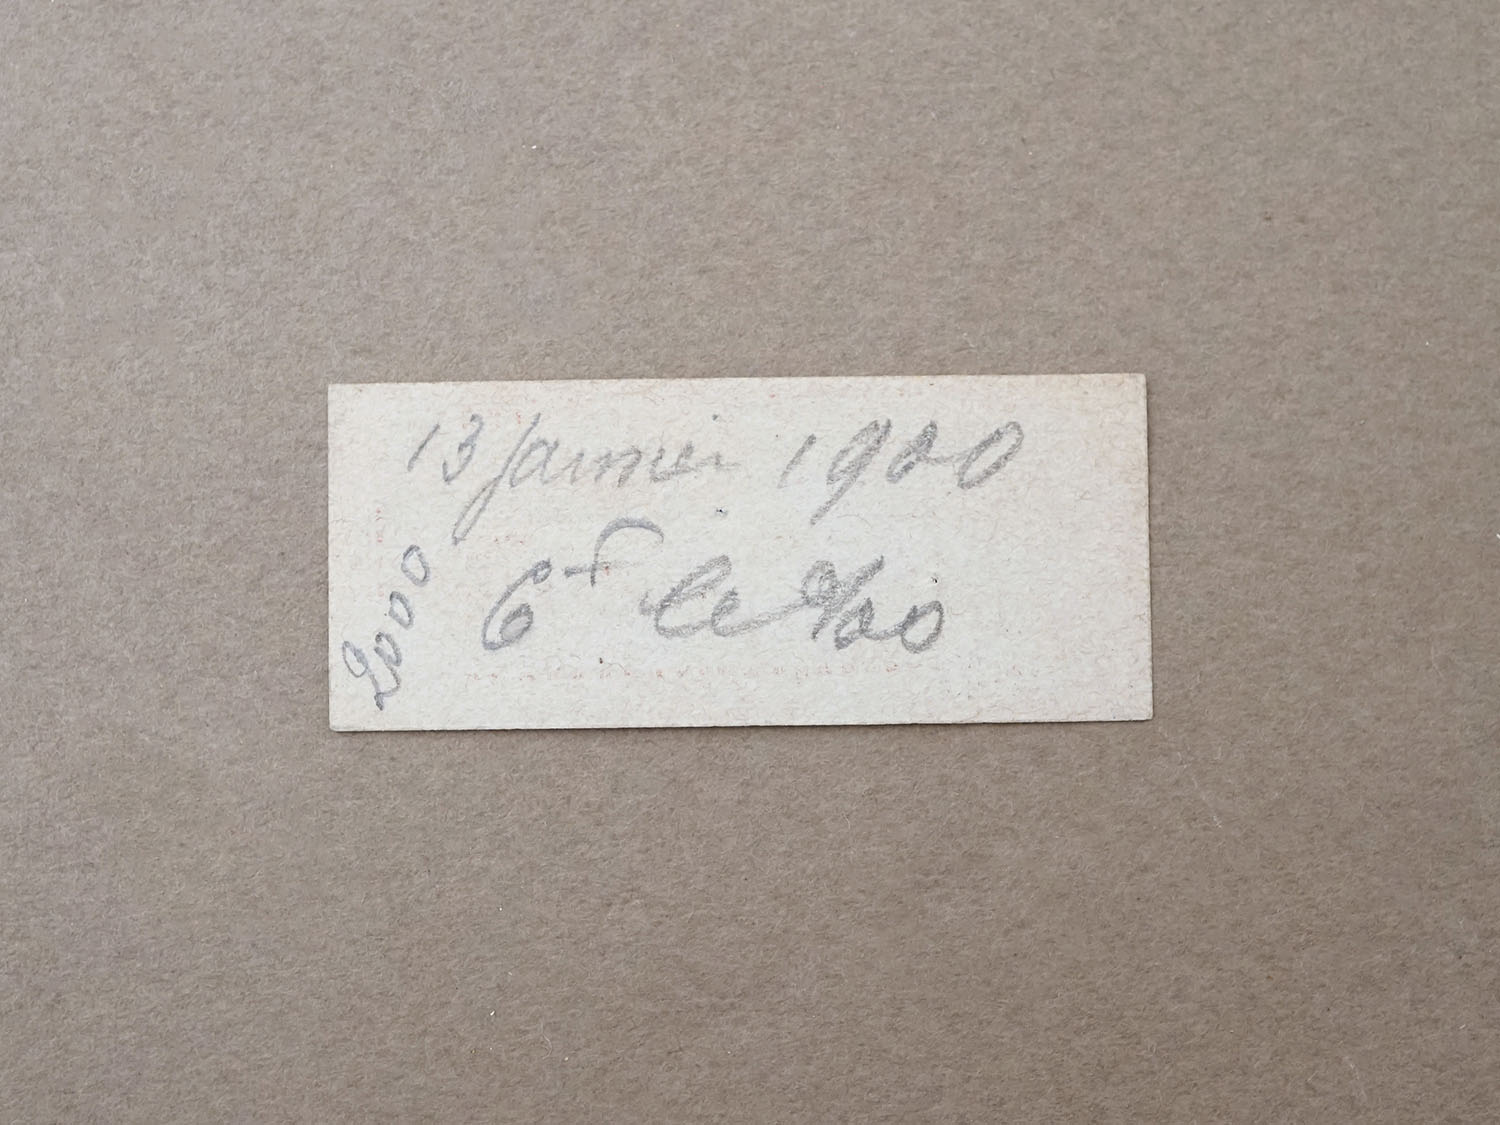 13 janvier 1900
6f le %00
2000